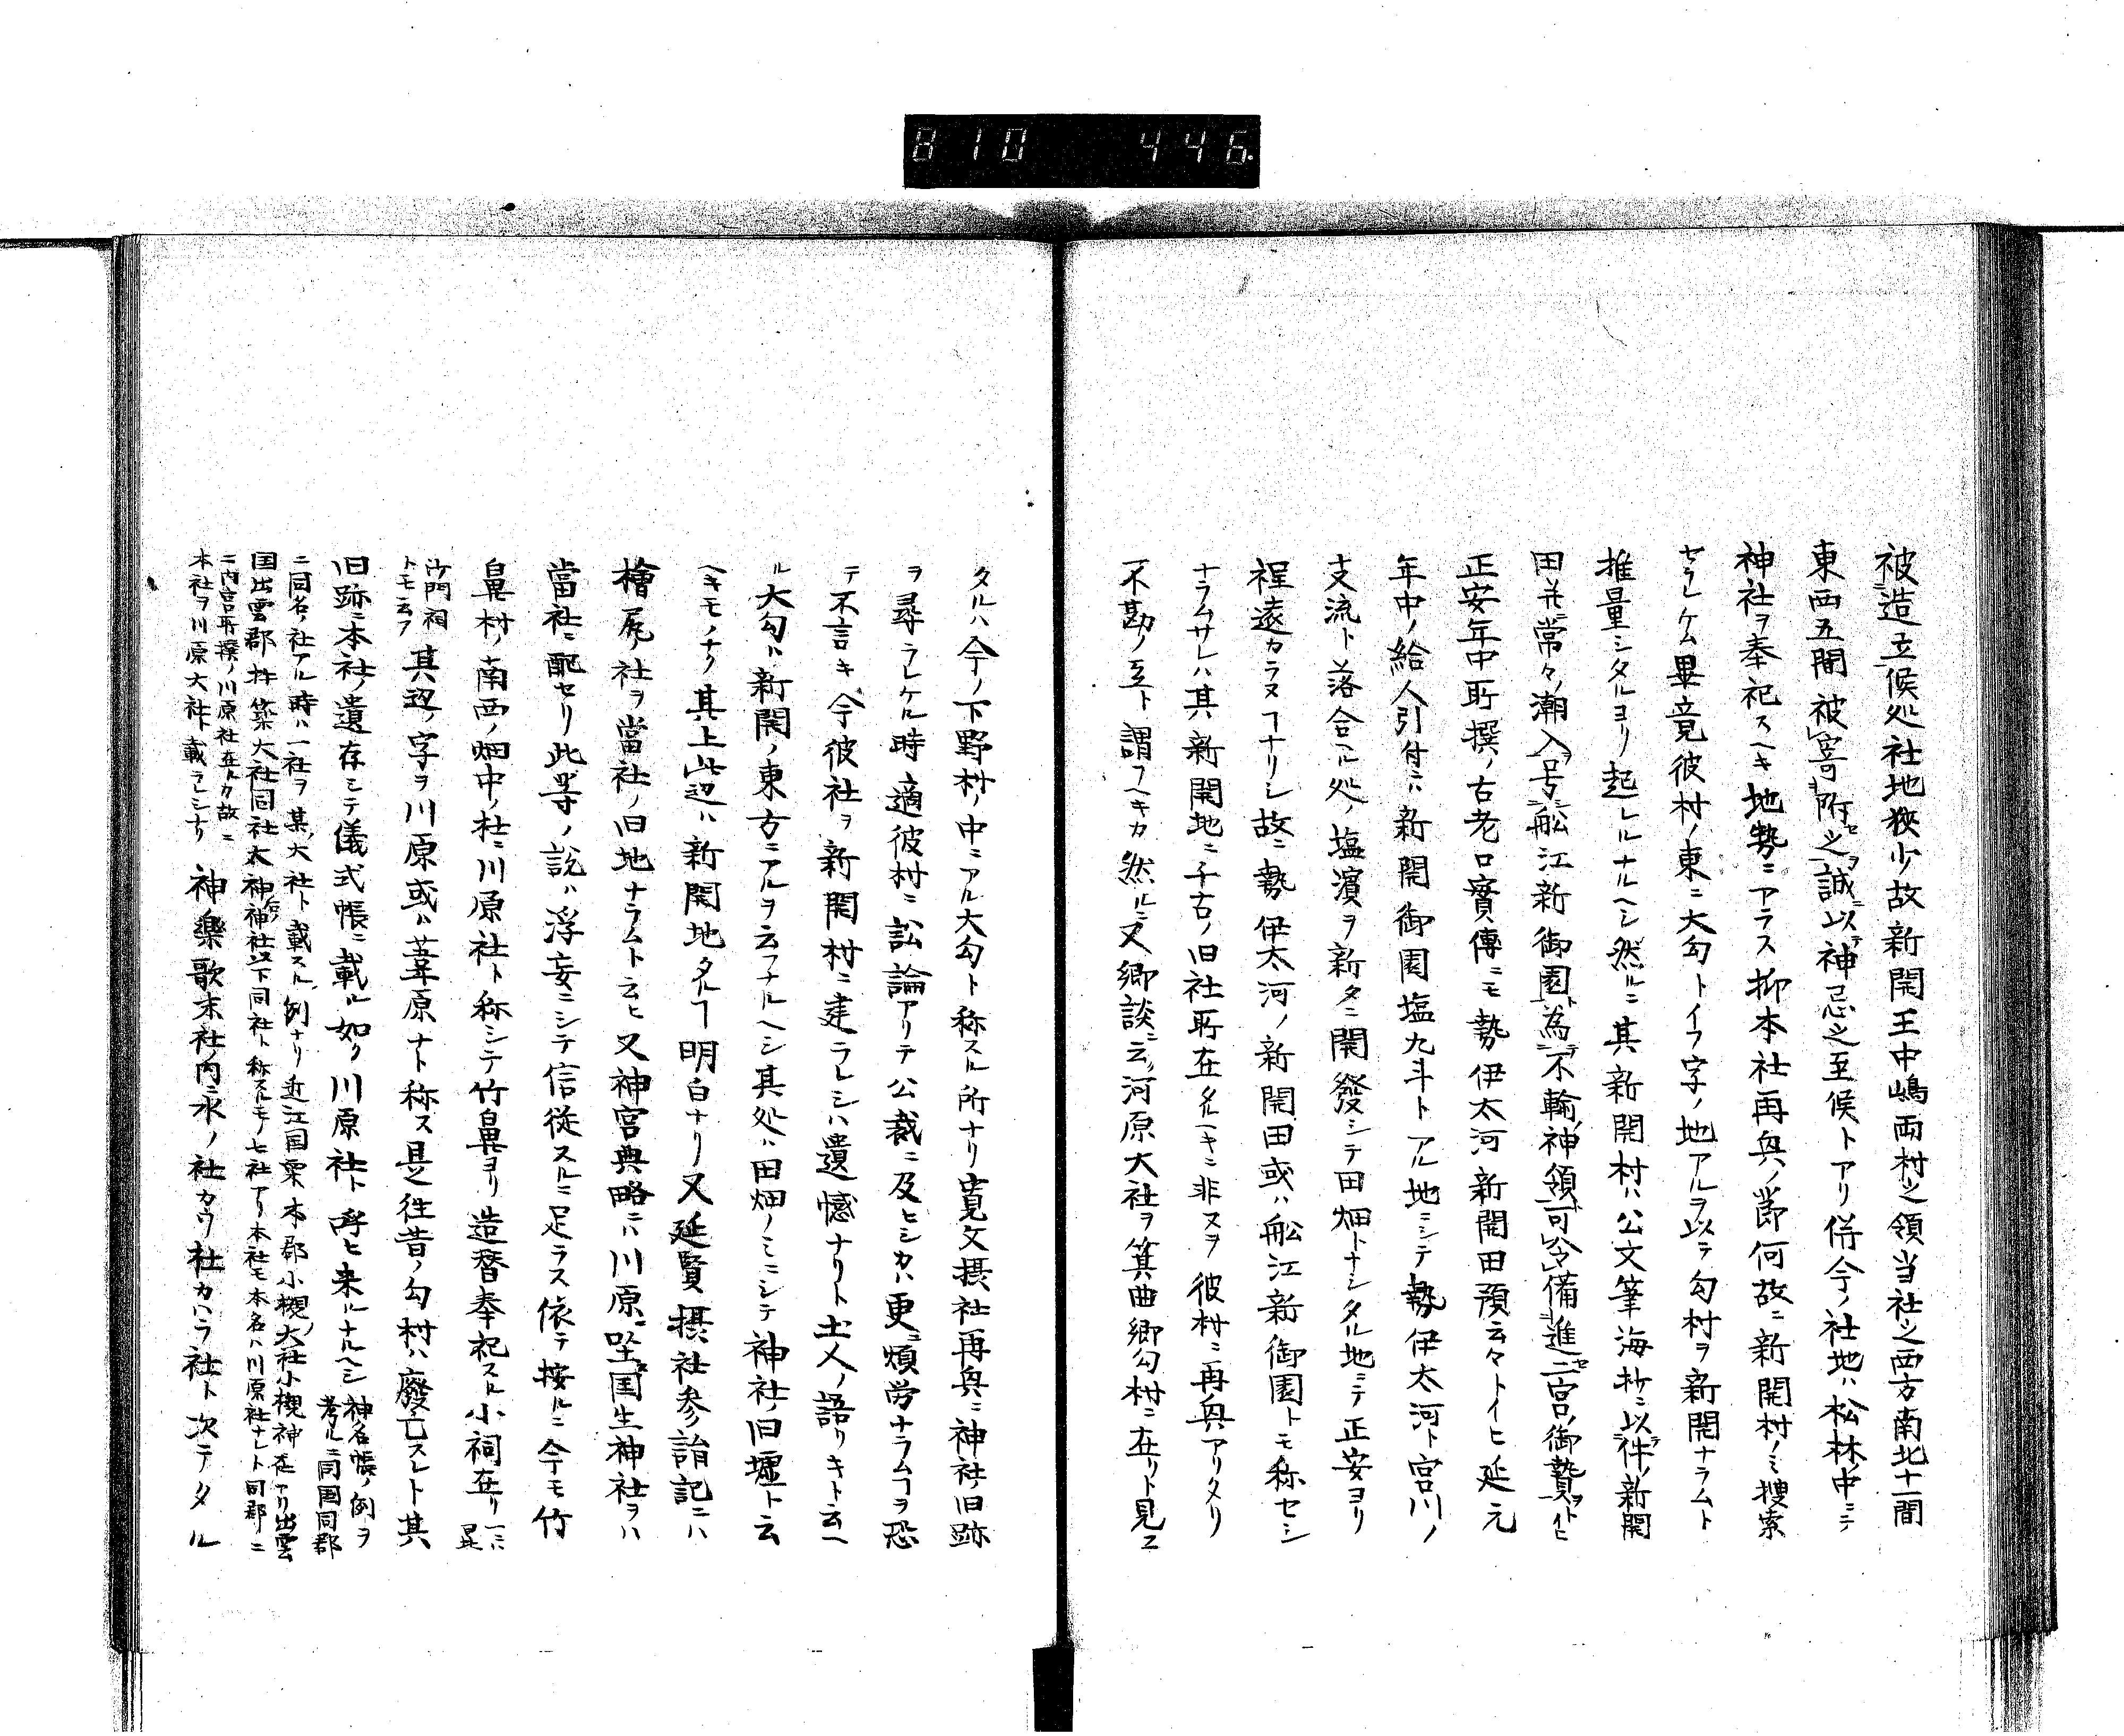 810 446
被造立候処社地狹少故新開王中嶋両村之領当社之西方南北十一間
東西五間被寄所之誠以神忌之至候トアリ併今ノ社地ハ松林ノ中ニテ
神社ヲ奉祀スヘキ地勢ニアラス抑本社再興ノ節何故ニ新開村ノミ捜索
セラレケム畢竟彼村ノ東ニ大勾トイフ字ノ地アルヲ以テ勾村ヲ新開ナラムト
推量シタルヨリ起レルナルヘシ然ルニ其新開村ハ公文筆海抄ニ以件ノ新開
田并常々ノ潮入号舩江新御園為不輸神領可令備進二宮御贄ヲトイヒ
正安年中所撰ノ古老口實傳ニモ勢伊太河新開田預云々トイヒ延元
年中ノ給人引付ニハ新開御園塩九斗トアル地ニシテ勢伊太河ト宮川ノ
支流ト落合ヘル処ノ塩濱ヲ新タニ開發シテ田畑トナシタル地ニテ正安ヨリ
程遠カラヌヿナリシ故ニ勢伊太河ノ新開田或ハ舩江新御園トモ称セシ
ナラムサレハ其新開地ニ千古ノ旧社所在タルヘキニ非ヌヲ彼村ニ再興アリタリ
不勘ノ至ト謂フヘキカ然ルニ又郷談ニ云河原大社ヲ箕曲郷勾村ニ在リト見エ
タルハ今ノ下野村ノ中ニアル大勾ト称スル所ナリ寛文摂社再興ニ神社旧跡
ヲ尋ラレケル時適彼村ニ訟論アリテ公裁ニ及ヒシカハ更ニ煩労ナラムヿヲ恐
テ不言キ今彼社ヲ新開村ニ建ラレシハ遺憾ナリト土人ノ語リキト云ヘ
ル大勾ハ新開ノ東方ニアルヲ云フナルヘシ其処ハ田畑ノミニシテ神社ノ旧墟ト云
ヘキモノナク其上此辺ハ新開地タルヿ明白ナリ又延賢摂社参詣記ニハ
檜尻ノ社ヲ當社ノ旧地ナラムト云ヒ又神宮典略ニハ川原ニ坐国生神社ヲハ
當社ニ配セリ此等ノ説ハ浮妄ニシテ信従スルニ足ラス依テ按ルニ今モ竹
鼻村ノ南西ノ畑中ノ杜ニ川原社ト称シテ竹鼻ヨリ造替奉祀スル小祠在リ一ニハ毘
沙門祠トモ云フ其辺ノ字ヲ川原或ハ葦原ナト称ス是往昔ノ勾村ハ廢亡スレト其
旧跡ニ本社ノ遺存シテ儀式帳ニ載ル如ク川原社ト呼ヒ来ルナルヘシ神名帳ノ例ヲ考ルニ同国同郡
ニ同名ノ社アル時ハ一社ヲ某ノ大社ト載スル例ナリ近江国栗本郡小槻大社小槻神社アリ出雲
国出雲郡杵築大社同社大神神社以下同社ト称スルモノ七社アリ本社モ本名ハ川原社ナレト同郡ニ
ニ内宮所撰ノ川原社在ルカ故ニ
本社ヲ川原大社ト載ラレシナリ 神樂歌末社ノ内ニ氷ノ社カウ社カハラ社ト次テタル